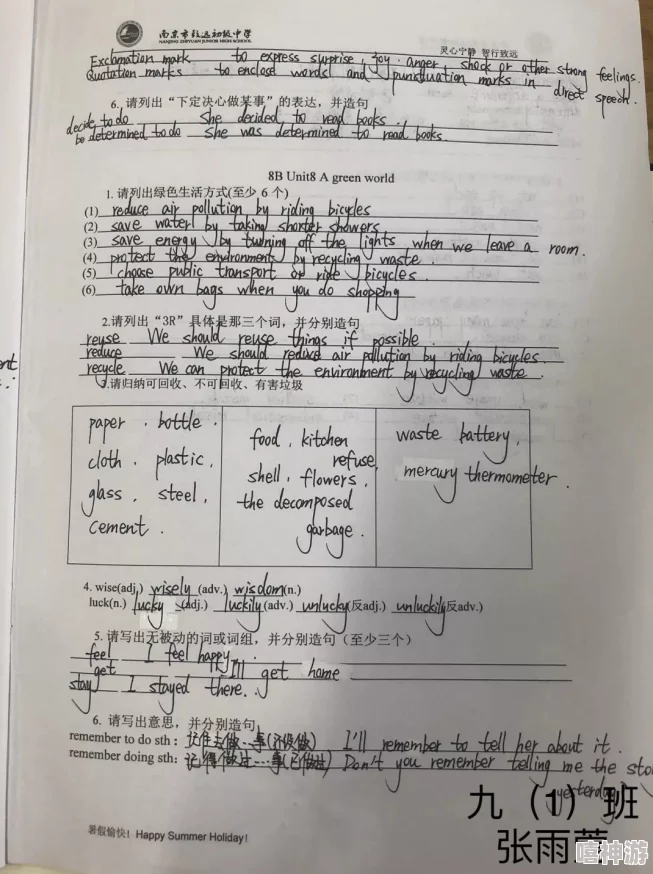 南京市致远初级中学
NANJING ZHIYUAN JUNIOR HIGH SCHOOL
灵心宁静 智行致远
Exclamation mark to express surprise, joy, anger, shock or other strong feelings.
Quotation marks to enclose words and punctuation marks in direct speech.
6. 请列出“下定决心做某事”的表达，并造句
decide to do She decided to read books.
be determined to do She was determined to read books.
8B Unit8 A green world
1. 请列出绿色生活方式(至少 6 个)
(1) reduce air pollution by riding bicycles
(2) save water by taking shorter showers
(3) save energy by turning off the lights when we leave a room.
(4) protect the environment by recycling waste.
(5) choose public transport or ride bicycles.
(6) take own bags when you do shopping
2.请列出“3R”具体是那三个词，并分别造句
reuse We should reuse things if possible.
reduce We should reduce air pollution by riding bicycles.
recycle We can protect the environment by recycling waste.
3.请归纳可回收、不可回收、有害垃圾
paper . bottle .
cloth . plastic,
glass , steel ,
cement .
food , kitchen
refuse,
shell , flowers ,
the decomposed
garbage .
waste battery,
mercury thermometer .
4. wise(adj.) wisely (adv.) wisdom(n.)
luck(n.) lucky (adj.) luckily(adv.) unlucky(反adj.) unluckily(反adv.)
5. 请写出无被动的词或词组，并分别造句（至少三个）
feel I feel happy.
get I'll get home
stay I stayed there.
6. 请写出意思，并分别造句
remember to do sth: 记住去做…事(还没做) I'll remember to tell her about it.
remember doing sth: 记得做过…事(已做过) Don't you remember telling me the
yesterday?
九（1）班
张雨
暑假愉快! Happy Summer Holiday!
嘻神游